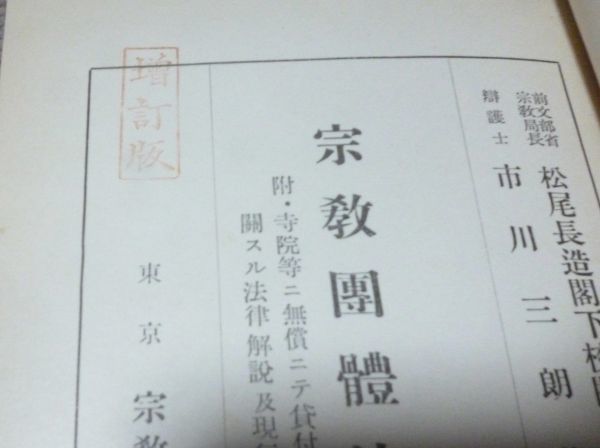 前文部省
宗敎局長
松尾長造閣下校閲
辯護士
市川三朗
宗敎團體法
附・寺院等ニ無償ニテ貸付
關スル法律解說及現
東京
宗敎
增訂版